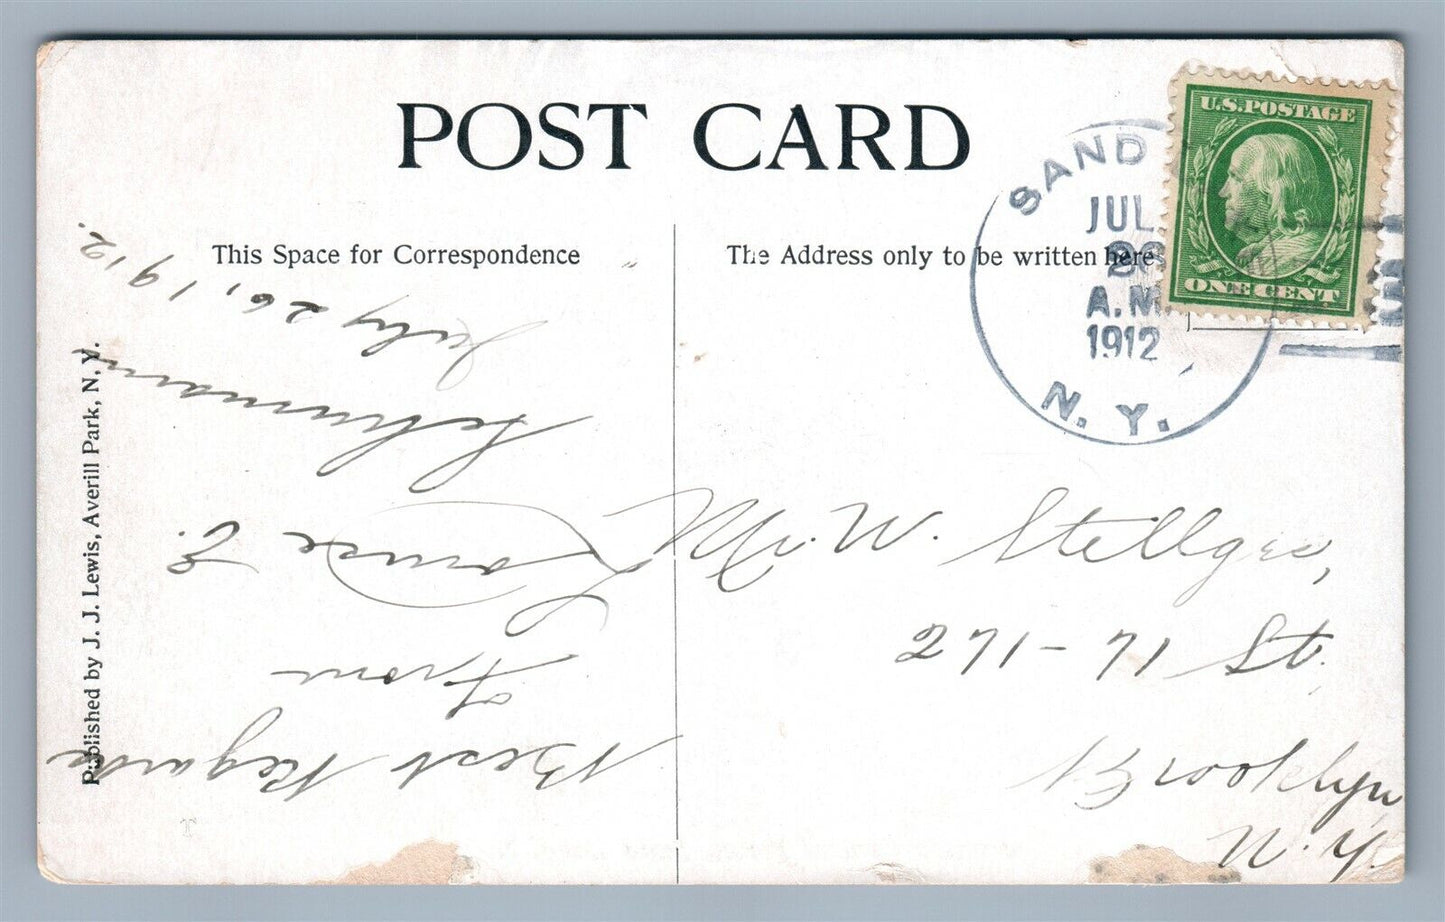 POST CARD
This Space for Correspondence
The Address only to be written here
U.S. POSTAGE
ONE CENT
SAND
JUL
26
A.M.
1912
N.Y.
Published by J. J. Lewis, Averill Park, N. Y.
Best Regards
From
Louise E.
Schumann
July 26, 1912.
Mr. W. Stellges,
271-71 St.
Brooklyn
N.Y.